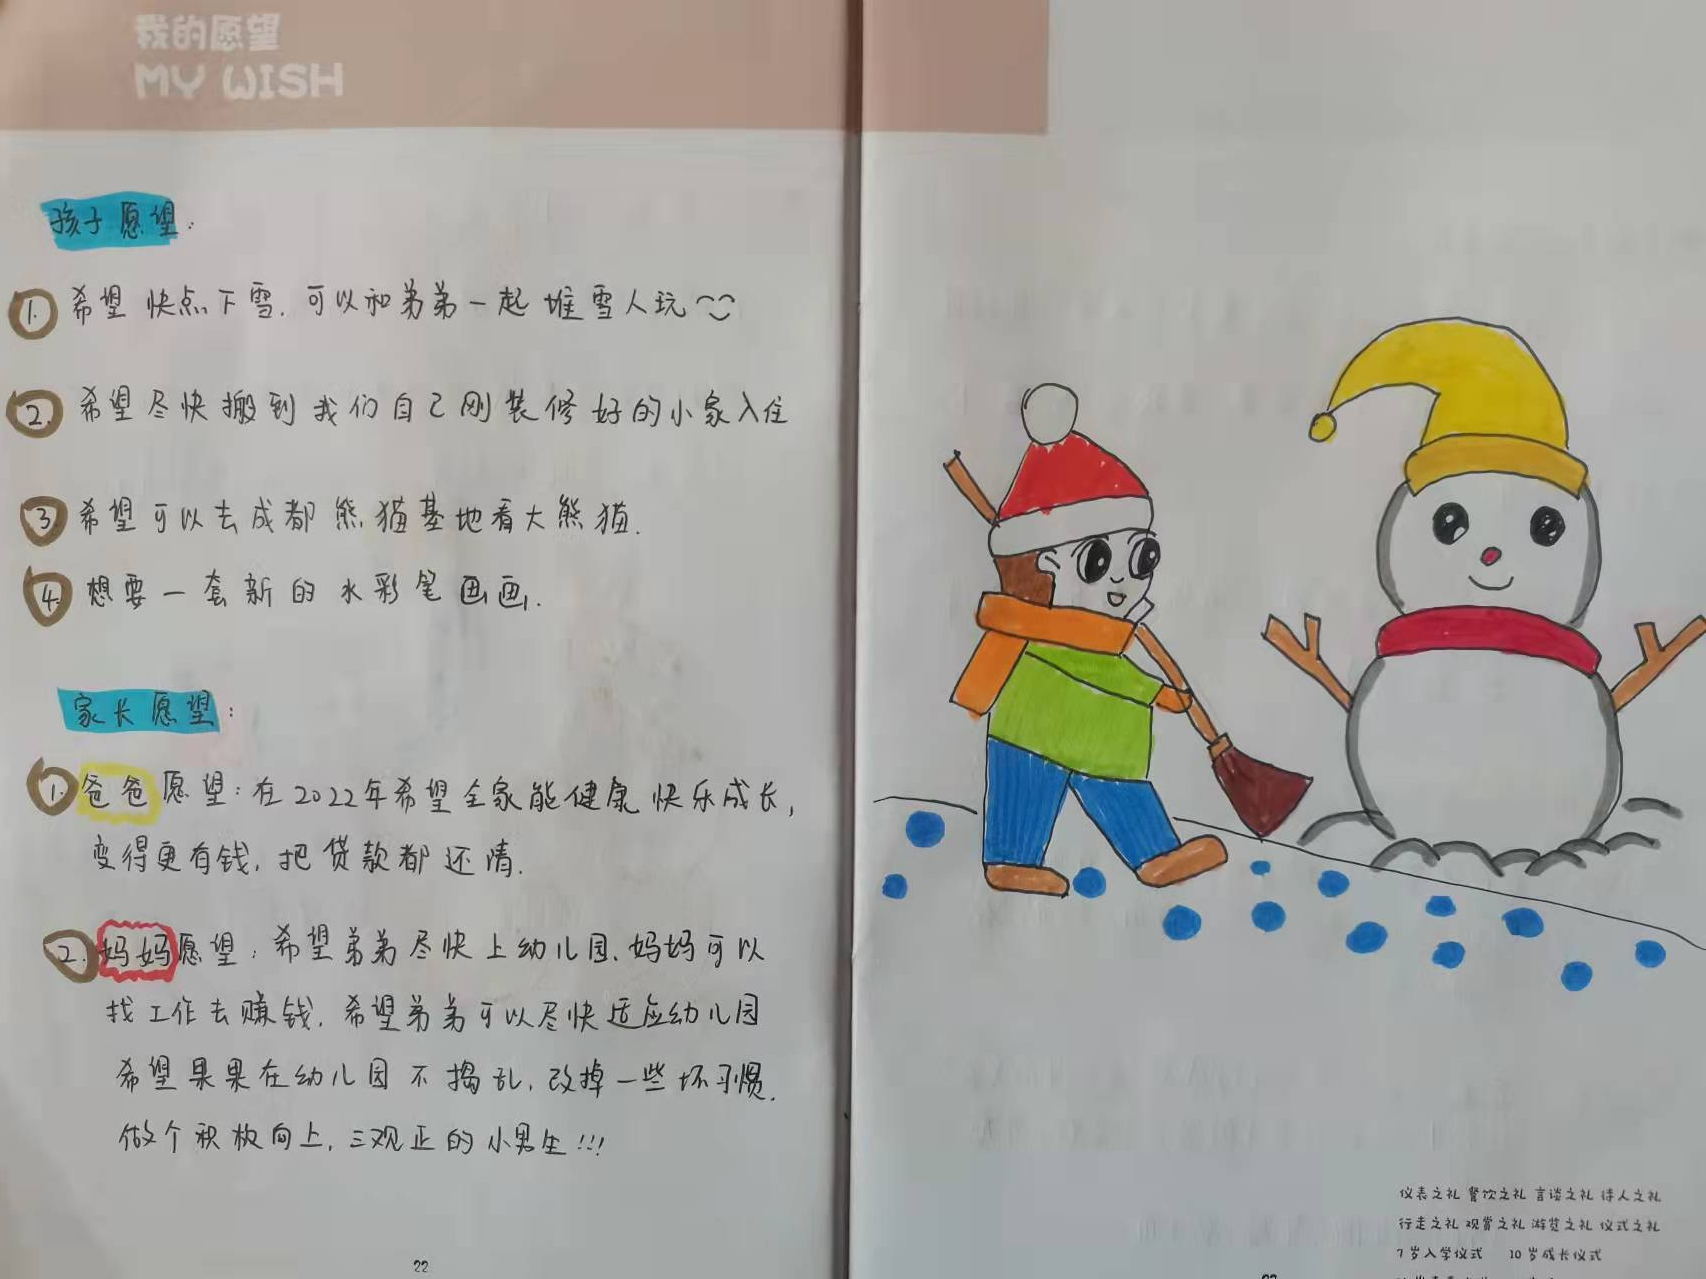 我的愿望
MY WISH
孩子愿望:
1. 希望快点下雪.可以和弟弟一起堆雪人玩
2. 希望尽快搬到我们自己刚装修好的小家入住
3. 希望可以去成都熊猫基地看大熊猫.
4. 想要一套新的水彩笔画画.
家长愿望:
1. 爸爸愿望:在2022年希望全家能健康快乐成长,
变得更有钱,把贷款都还清.
2. 妈妈愿望:希望弟弟尽快上幼儿园.妈妈可以
找工作去赚钱.希望弟弟可以尽快适应幼儿园
希望果果在幼儿园不捣乱,改掉一些坏习惯.
做个积极向上,三观正的小男生!!!
22
仪表之礼 餐饮之礼 言谈之礼 待人之礼
行走之礼 观赏之礼 游览之礼 仪式之礼
7岁入学仪式 10岁成长仪式